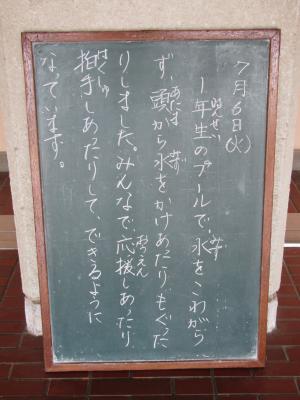 7月6日(火)
1年生のプールで、水をこわがら
ず、頭から水をかけあたり、もぐった
りしました。みんなで、応援しあったり
拍手しあたりして、できるように
なっています。